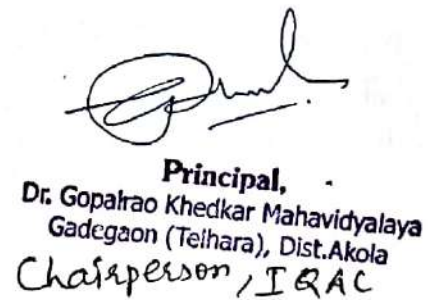 Principal,
Dr. Gopalrao Khedkar Mahavidyalaya
Gadegaon (Telhara), Dist.Akola
Chairperson, IQAC